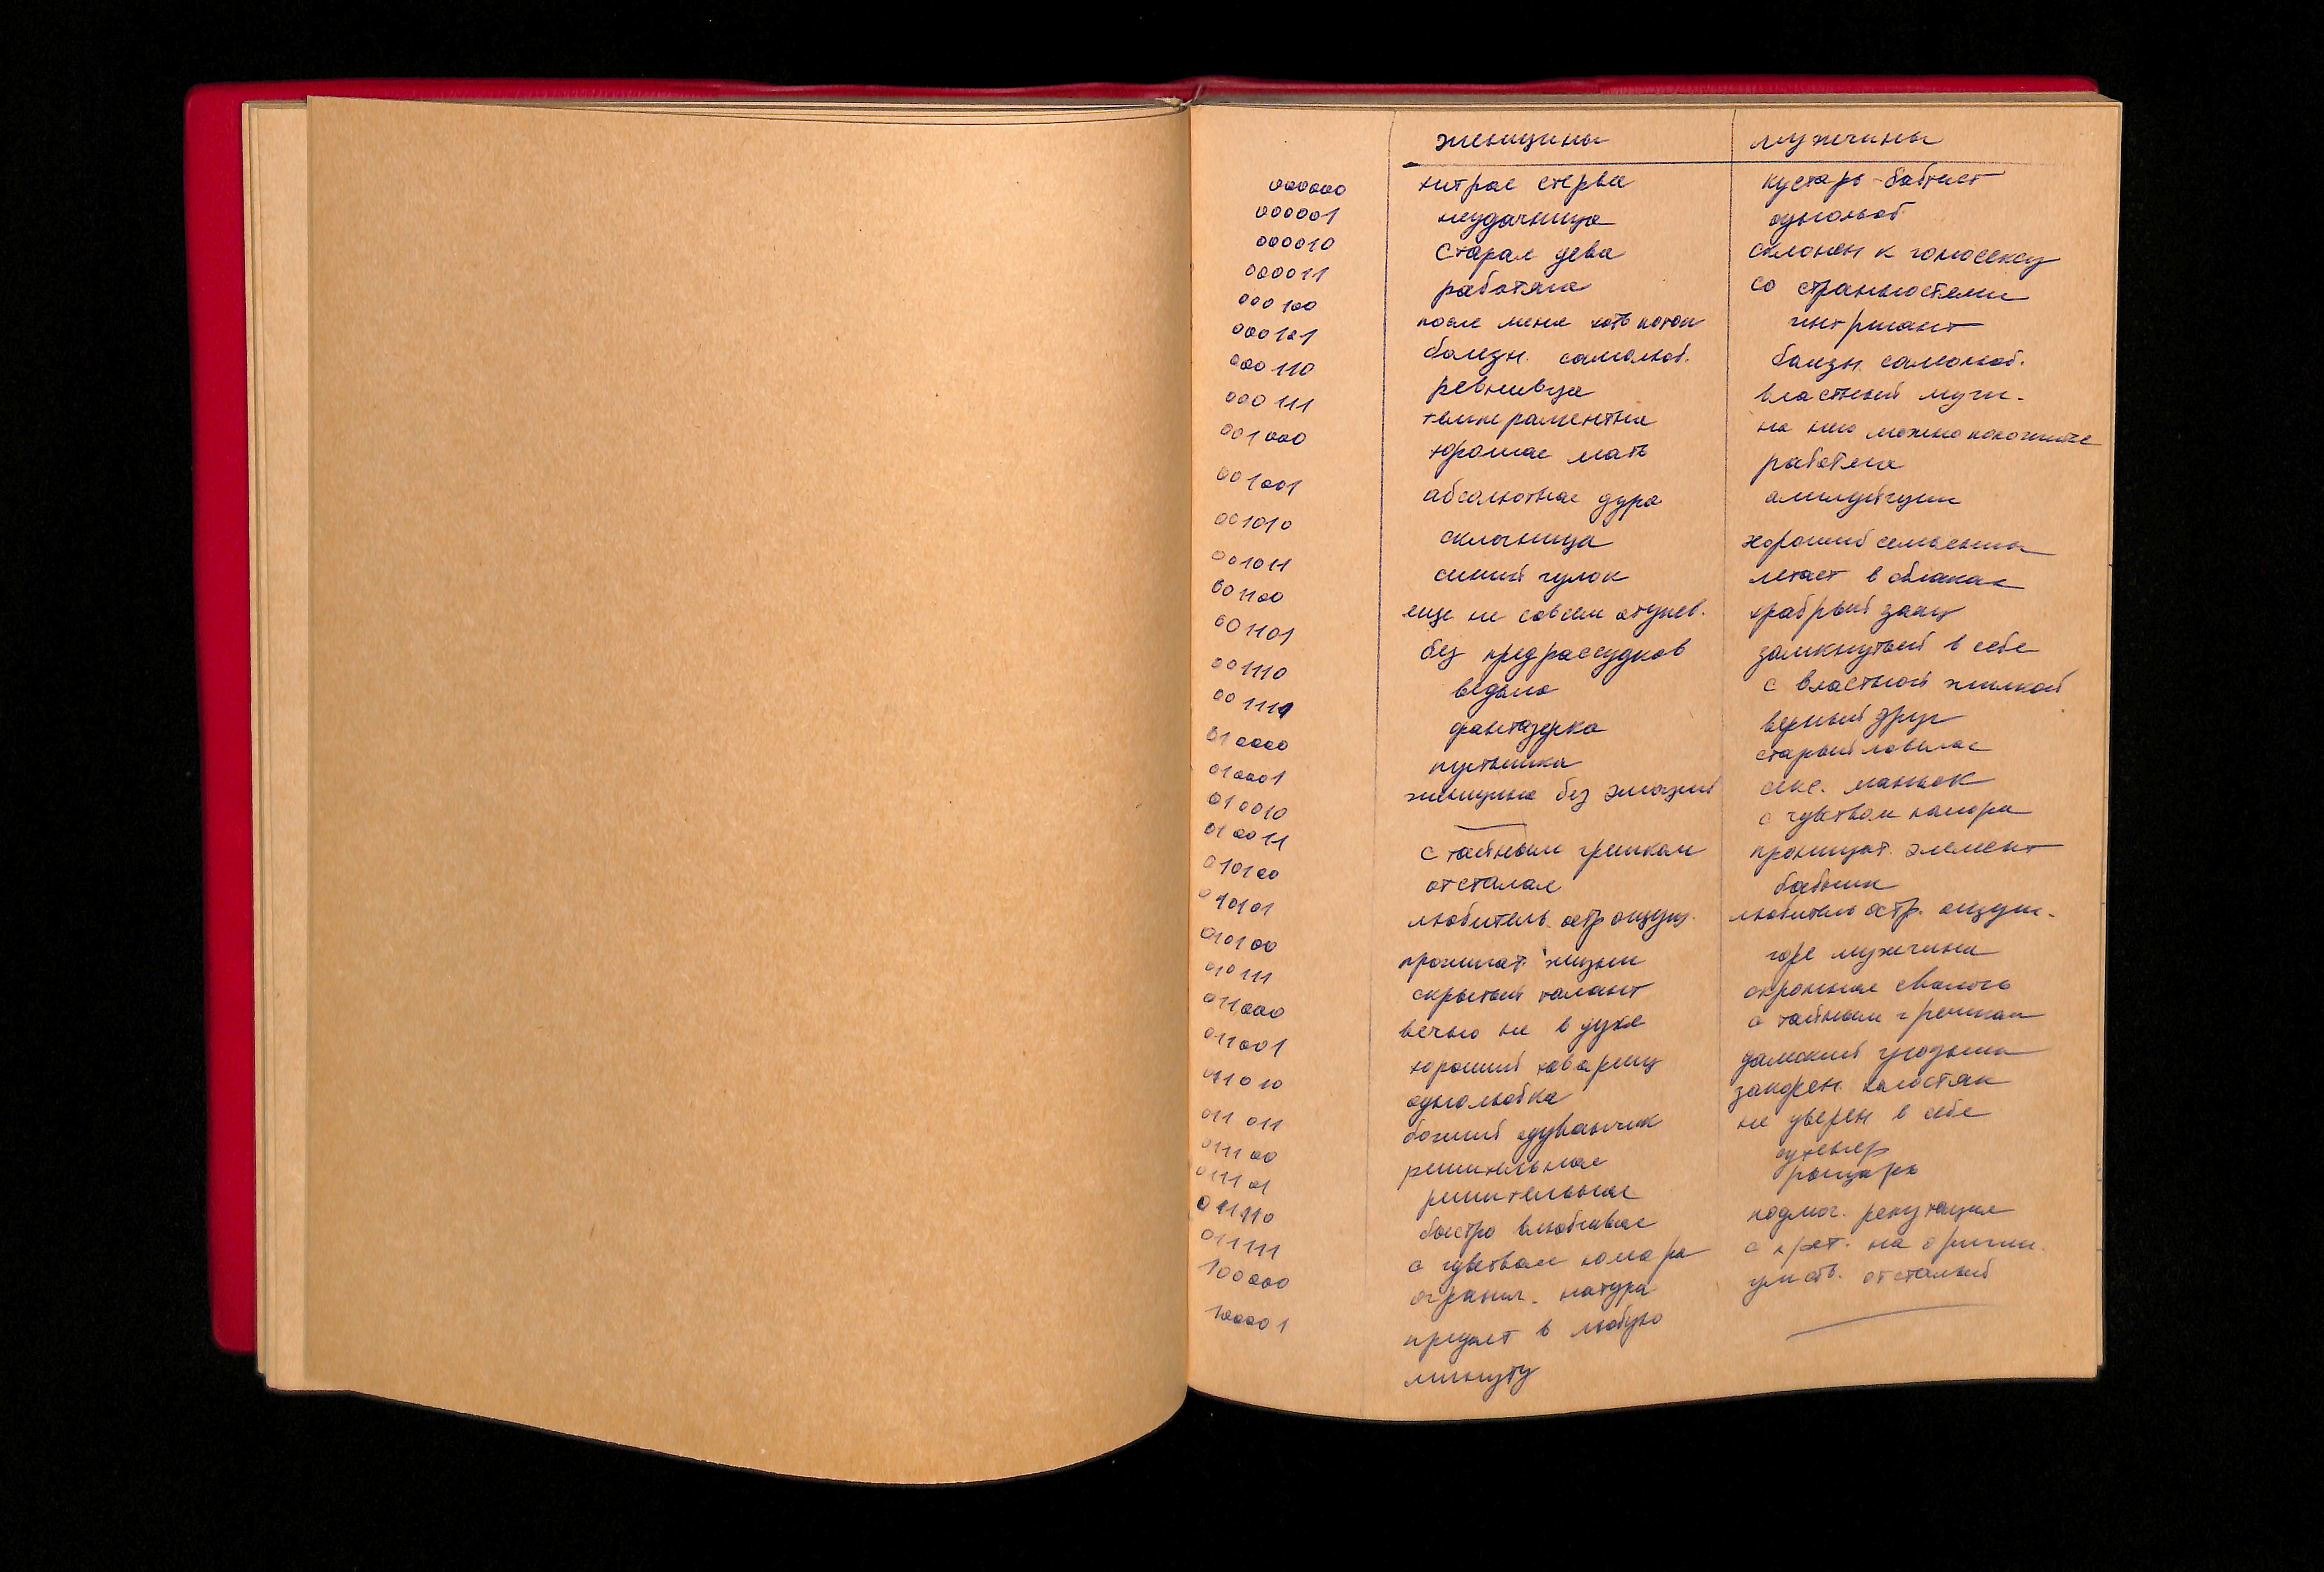 женщины мужчины
000000 хитрая стерва кустарь-баптист
000001 неудачница однолюб
000010 старая дева склонен к гомосексу
000011 работяга со странностями
000100 после меня хоть потоп интригант
000101 болезн. самолюб. болезн. самолюб.
000110 ревнивца властный мужч.
000111 темпераментна на него можно положиться
001000 хорошая мать работяга
001001 абсолютная дура
001010 склочница хороший семьянин
001011 синий чулок летает в облаках
001100 еще не совсем отупев. храбрый заяц
001101 без предрассудков замкнутый в себе
001110 ведьма с властной жилкой
001111 фантазерка верный друг
010000 пустышка старый ловелас
010001 женщина без эмоций секс. маньяк
010010 — с чувством юмора
010011 с тайным грешком проницат. элемент
010100 отсталая бабник
010101 любитель остр ощущ. любитель остр. ощущ.
010100 прожигат. жизни горе мужчина
010111 скрытый талант скромная сволочь
011000 вечно не в духе с тайным грешком
011001 хороший товарищ дамский угодник
011010 однолюбка закорен. холостяк
011011 божий одуванчик не уверен в себе
011100 решительная сутенер
011101 решительная рыцарь
011110 быстро влюбчивая подмоч. репутация
011111 с чувством юмора с прет. на оригин.
100000 огранич. натура умств. отсталый
100001 предает в любую —
минуту